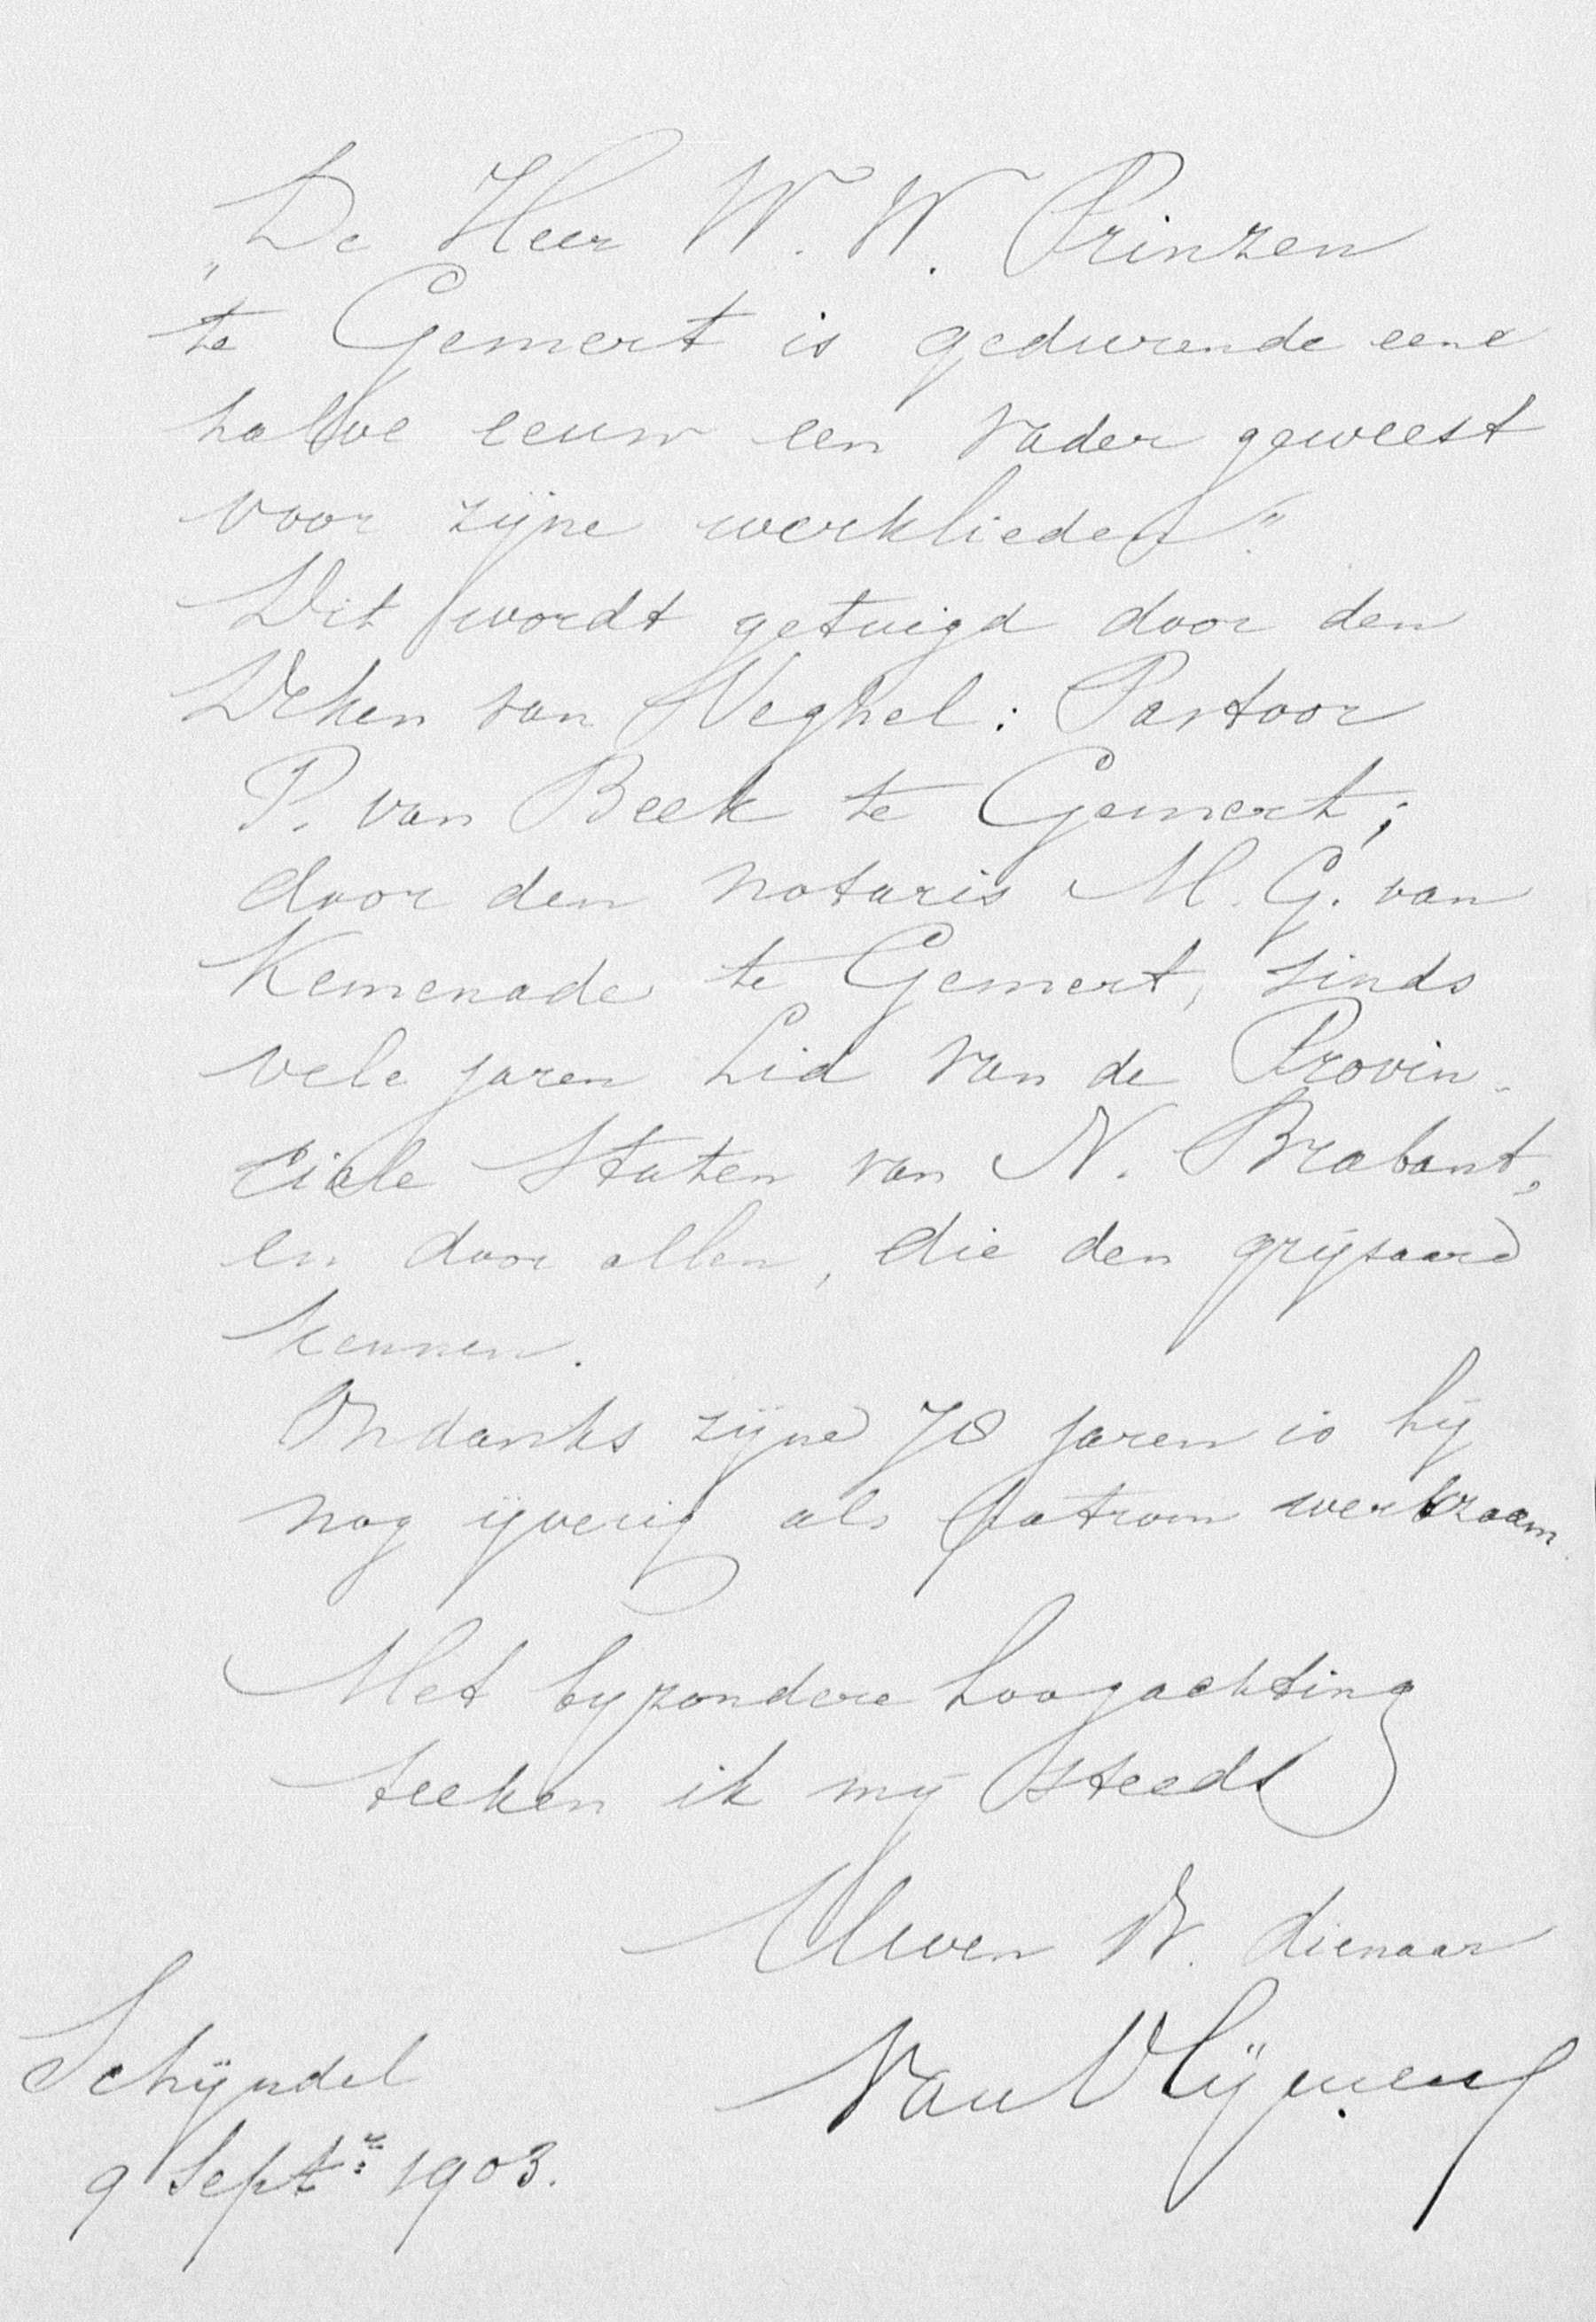 „De Heer W. W. Prinzen
te Gemert is gedurende eene
halve eeuw een vader geweest
voor zijne werklieden."
Dit wordt getuigd door den
Deken van Veghel: Pastoor
P. van Beek te Gemert;
door den notaris M. G. van
Kemenade te Gemert, sinds
vele jaren Lid van de Provin-
ciale Staten van N. Brabant,
en door allen, die den grijsaard
kennen.
Ondanks zijne 78 jaren is hij
nog ijverig als patroon werkzaam.
Met byzondere hoogachting
teeken ik mij steeds
Uwen W. dienaar
Van Vlijmen
Schijndel
9 Septr 1903.